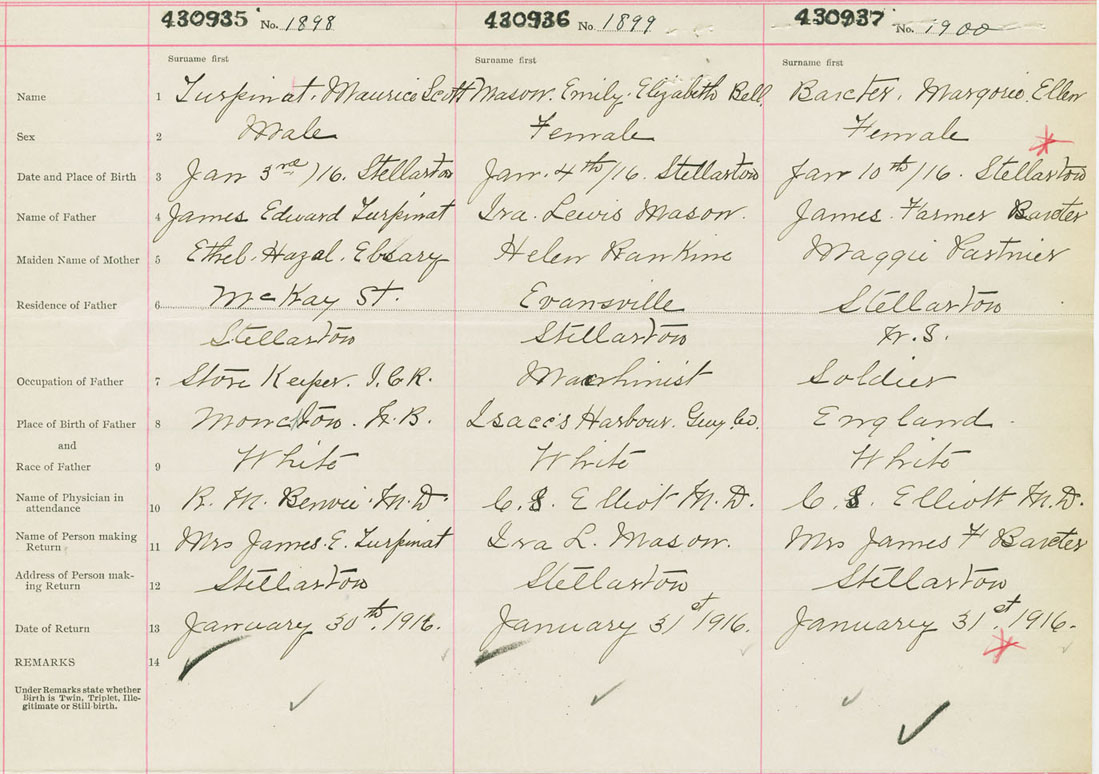 430935 No. 1898 430936 No. 1899 430937 No. 1900
Surname first Surname first Surname first
Name 1 Turpinat. Maurice Scott Mason. Emily. Elizabeth Bell Baxter. Marjorie. Ellen
Sex 2 Male Female Female
Date and Place of Birth 3 Jan 3rd/16. Stellarton Jan. 4th/16. Stellarton Jan 10th/16. Stellarton
Name of Father 4 James Edward Turpinat Ira. Lewis Mason. James. Farmer Baxter
Maiden Name of Mother 5 Ethel. Hazel. Ebsary Helen Rankine Maggie
Residence of Father 6 McKay St. Evansville Stellarton
Stellarton Stellarton N.S.
Occupation of Father 7 Store Keeper. I.C.R. Machinist Soldier
Place of Birth of Father 8 Moncton. N.B. Isacc's Harbour. Guy. Co. England.
and
Race of Father 9 White White White
Name of Physician in
attendance 10 R. M. Benvie. M.D. C.S. Elliot M.D. C S. Elliott M.D.
Name of Person making
Return 11 Mrs James. E. Turpinat Ira L. Mason. Mrs James F Baxter
Address of Person mak-
ing Return 12 Stellarton Stellarton Stellarton
Date of Return 13 January 30th. 1916. January 31st 1916. January 31st. 1916.
REMARKS 14
Under Remarks state whether
Birth is Twin, Triplet, Ille-
gitimate or Still-birth.